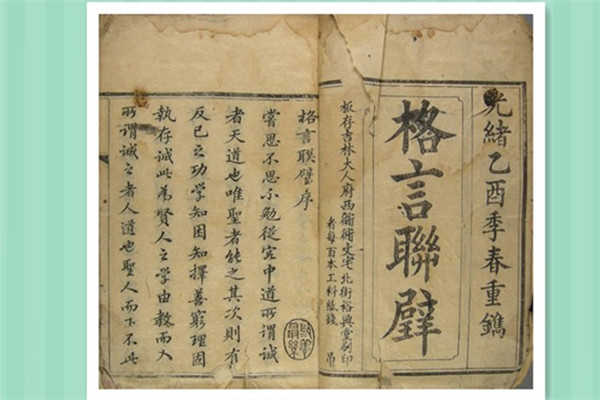 光緒乙酉季春重鐫
格言聯璧
板存吉林大人府西衚衕文宅北街裕興堂刻印
者每百本工料紙錢 吊
格言聯璧序
嘗思不思不勉從容中道所謂誠
者天道也唯聖者能之其次則有
反已之功學知困知擇善窮理固
執存誠此為賢人之學由教而入
所謂誠之者人道也聖人而下不此